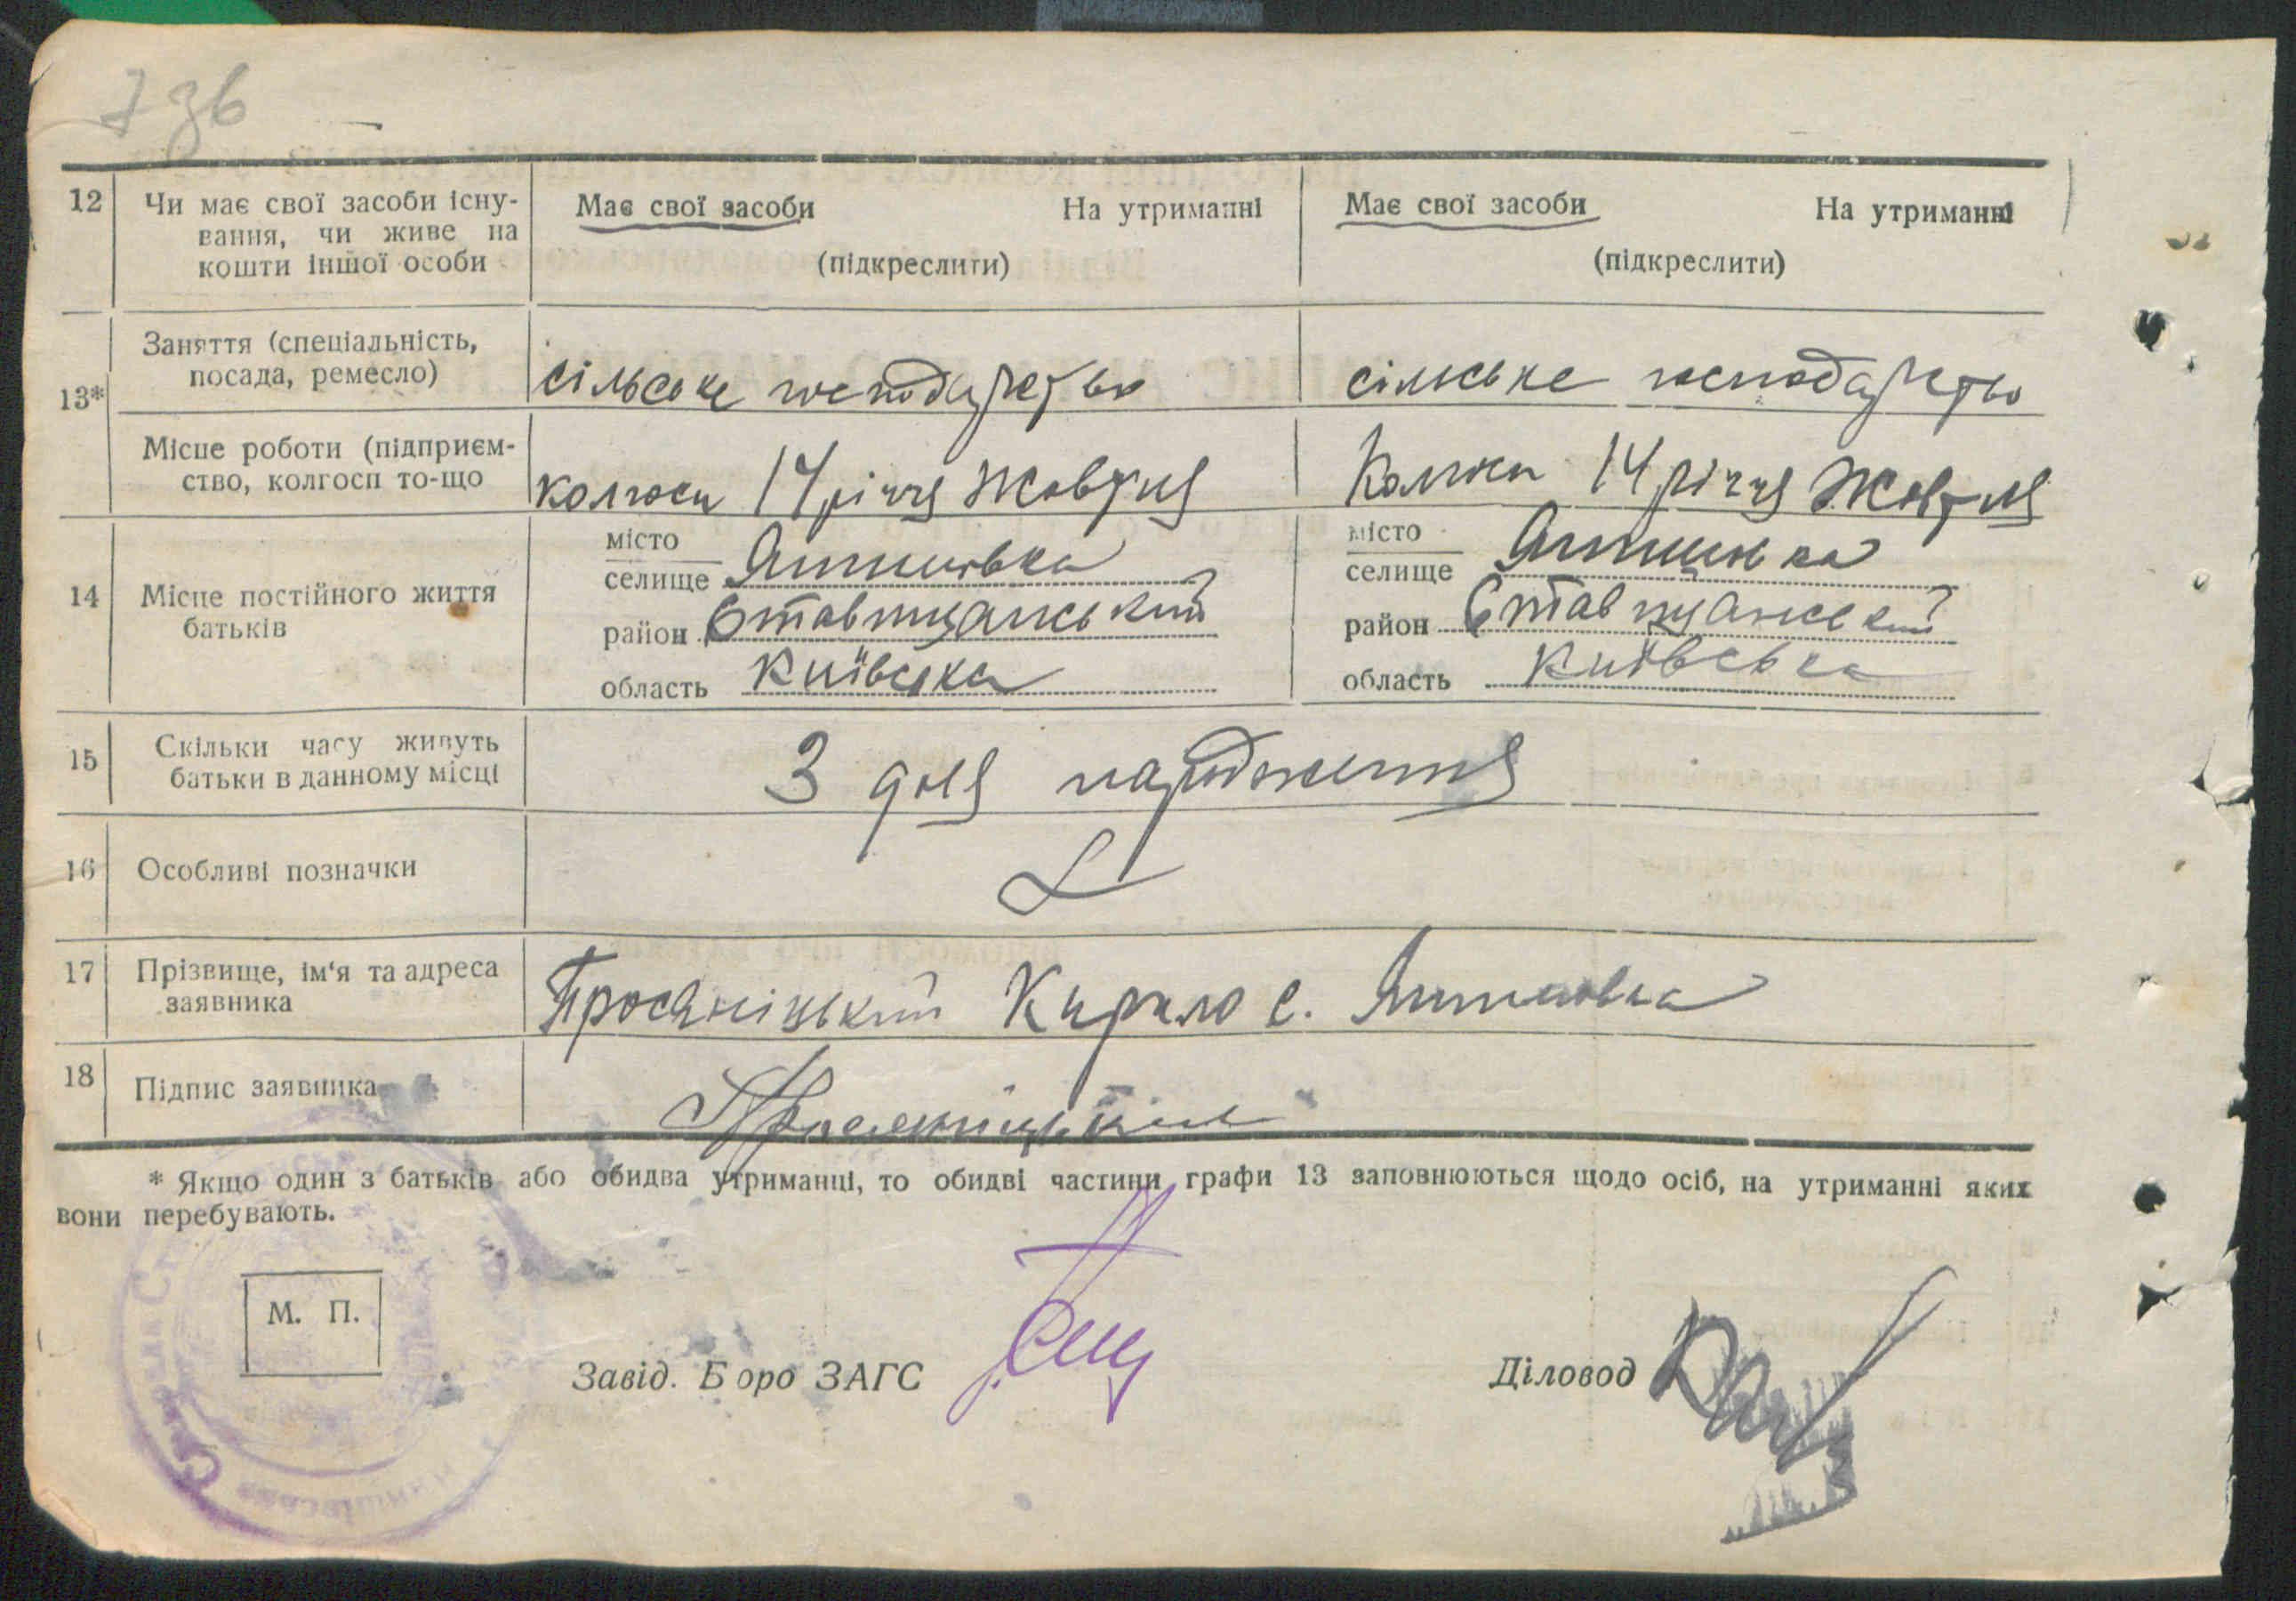 7 зв
12 Чи має свої засоби існу- Має свої засоби На утриманні Має свої засоби На утриманні
вання, чи живе на
кошти іншої особи (підкреслити) (підкреслити)
13* Заняття (спеціальність,
посада, ремесло) сільське господарство сільське господарство
Місце роботи (підприєм-
ство, колгосп то-що колгосп 14 річчя Жовтня Колгосп 14 річчя Жовтня
14 Місце постійного життя
батьків
місто
селище Янишівка
район Ставищанський
область Київська
місто
селище Янишівка
район Ставищанський
область Київська
15 Скільки часу живуть
батьки в данному місці З дня народження
16 Особливі позначки
17 Прізвище, ім‘я та адреса
заявника Просяніцький Кирило с. Янишівка
18 Підпис заявника Просяницький
* Якщо один з батьків або обидва утриманці, то обидві частини графи 13 заповнюються щодо осіб, на утриманні яких
вони перебувають.
М. П.
Завід. Бюро ЗАГС
Діловод